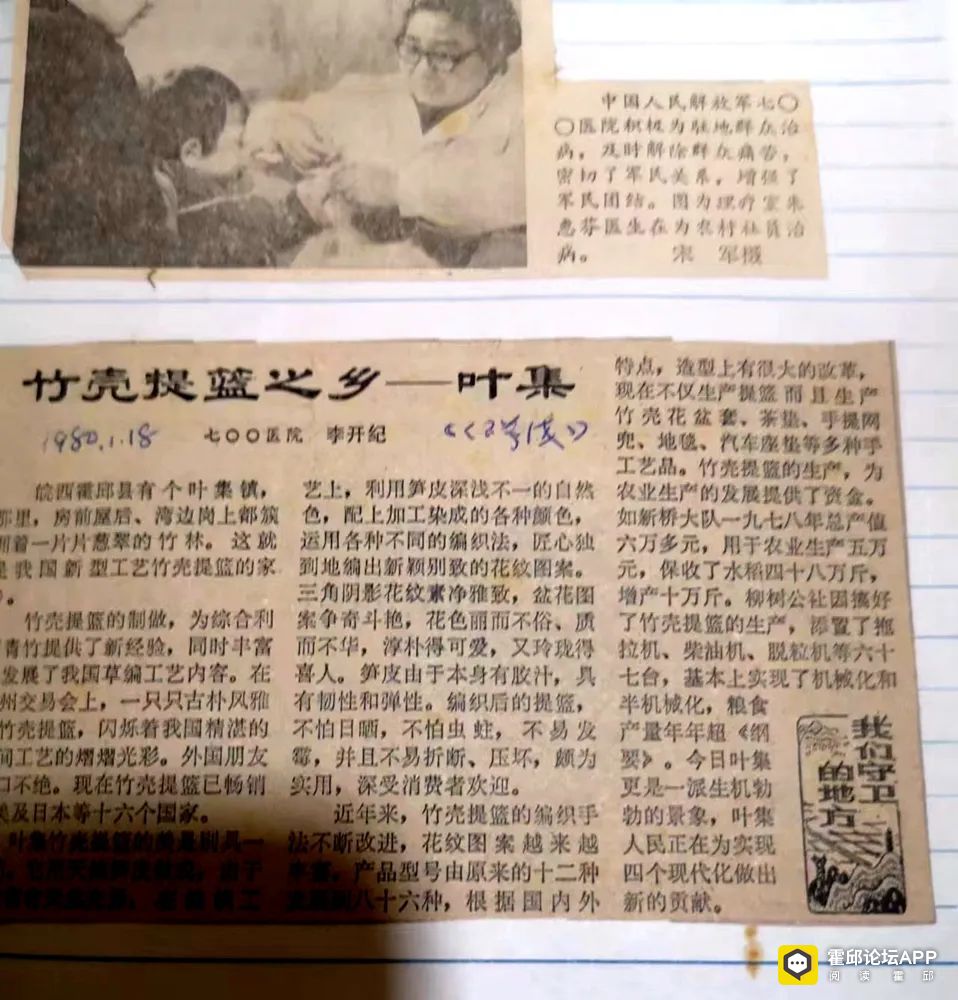 中国人民解放军七〇
〇医院积极为驻地群众治
病，及时解除群众痛苦，
密切了军民关系，增强了
军民团结。图为理疗室朱
惠芬医生在为农村社员治
病。 宋 军摄
竹壳提篮之乡——叶集
1980.1.18 七〇〇医院 李开纪
皖西霍邱县有个叶集镇，
那里，房前屋后、湾边岗上都簇
拥着一片片葱翠的竹林。这就
是我国新型工艺竹壳提篮的家
竹壳提篮的制做，为综合利
青竹提供了新经验，同时丰富
发展了我国草编工艺内容。在
州交易会上，一只只古朴风雅
竹壳提篮，闪烁着我国精湛的
间工艺的熠熠光彩。外国朋友
口不绝。现在竹壳提篮已畅销
美及日本等十六个国家。
叶集竹壳提篮的美是别具一
艺上，利用笋皮深浅不一的自然
色，配上加工染成的各种颜色，
运用各种不同的编织法，匠心独
到地编出新颖别致的花纹图案。
三角阴影花纹素净雅致，盆花图
案争奇斗艳，花色丽而不俗、质
而不华，淳朴得可爱，又玲珑得
喜人。笋皮由于本身有胶汁，具
有韧性和弹性。编织后的提篮，
不怕日晒，不怕虫蛀，不易发
霉，并且不易折断、压坏，颇为
实用，深受消费者欢迎。
近年来，竹壳提篮的编织手
法不断改进，花纹图案越来越
丰富。产品型号由原来的十二种
发展到八十六种，根据国内外
特点，造型上有很大的改革，
现在不仅生产提篮而且生产
竹壳花盆套、茶垫、手提网
兜、地毯、汽车座垫等多种手
工艺品。竹壳提篮的生产，为
农业生产的发展提供了资金。
如新桥大队一九七八年总产值
六万多元，用于农业生产五万
元，保收了水稻四十八万斤，
增产十万斤。柳树公社因搞好
了竹壳提篮的生产，添置了拖
拉机、柴油机、脱粒机等六十
七台，基本上实现了机械化和
半机械化，粮食
产量年年超《纲
要》。今日叶集
更是一派生机勃
勃的景象，叶集
人民正在为实现
四个现代化做出
新的贡献。
我们守卫
的地方
霍邱论坛APP
阅读霍邱